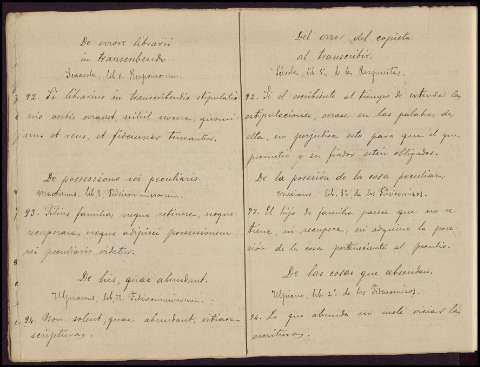 De errore librarii
in transcribendo
Scaevola, lib. 2. Responsorum.
92. Si librarius in transcribendis stipulatio
nis verbis errasset, nihil nocere, quomi
nus et reus, et fidejussor teneantur.
De possessione rei peculiaris.
lib. 2. Fideicommissorum.
93. Filius familias, neque retinere, neque
recuperare, neque adipisci possessionem
rei peculiaris videtur.
De his, quae abundant.
Ulpianus, lib. 2. Fideicommissorum.
94. Non solent, quae abundant, vitiare
scripturas.
Del error del copista
al transcribir.
lib. 2º. de las Respuestas.
92. Si el escribiente al tiempo de extender las
estipulaciones, errase en las palabras de
ella, no perjudica esto para que el que
prometió y su fiador estén obligados.
De la posesión de la cosa peculiar.
lib. 2º. de los Fideicomisos.
93. El hijo de familia parece que no re
tiene, ni recupera, ni adquiere la pose
sión de la cosa perteneciente al peculio.
De las cosas que abundan.
Ulpiano, lib. 2º. de los Fideicomisos.
94. Lo que abunda no suele viciar las
escrituras.